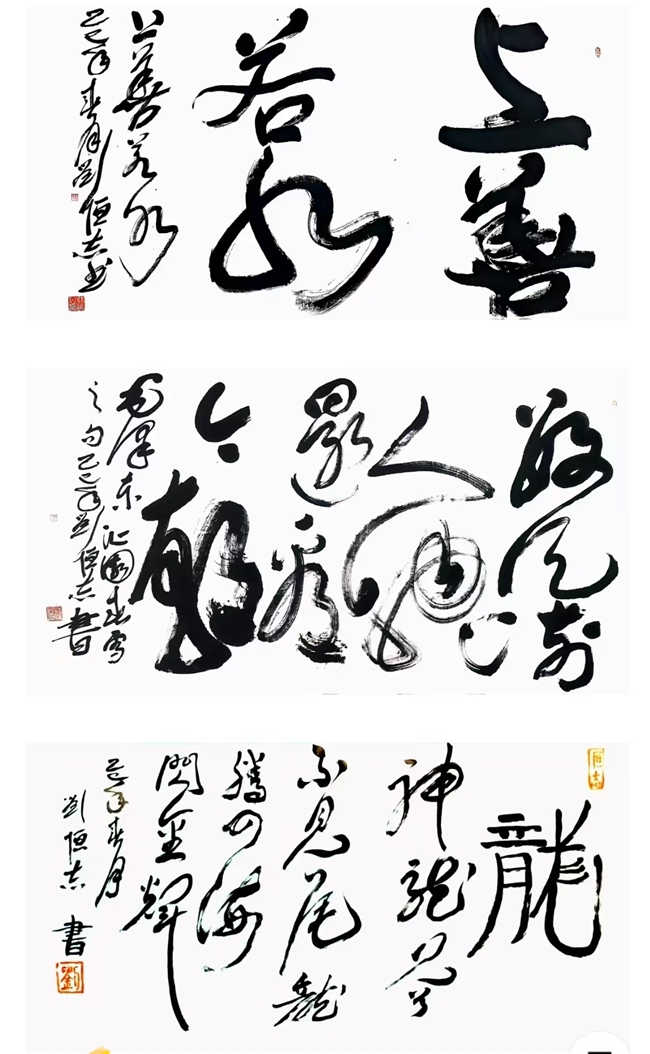 上善
若水
上善若水
乙巳年春月劉恒志书
数风流
人物
還看
今朝
毛澤东沁園春雪
之句乙巳年劉恒志書
恒志
龍
神龍見首
不見尾龍
騰四海
閃金輝
乙巳年春月
劉恒志書
劉